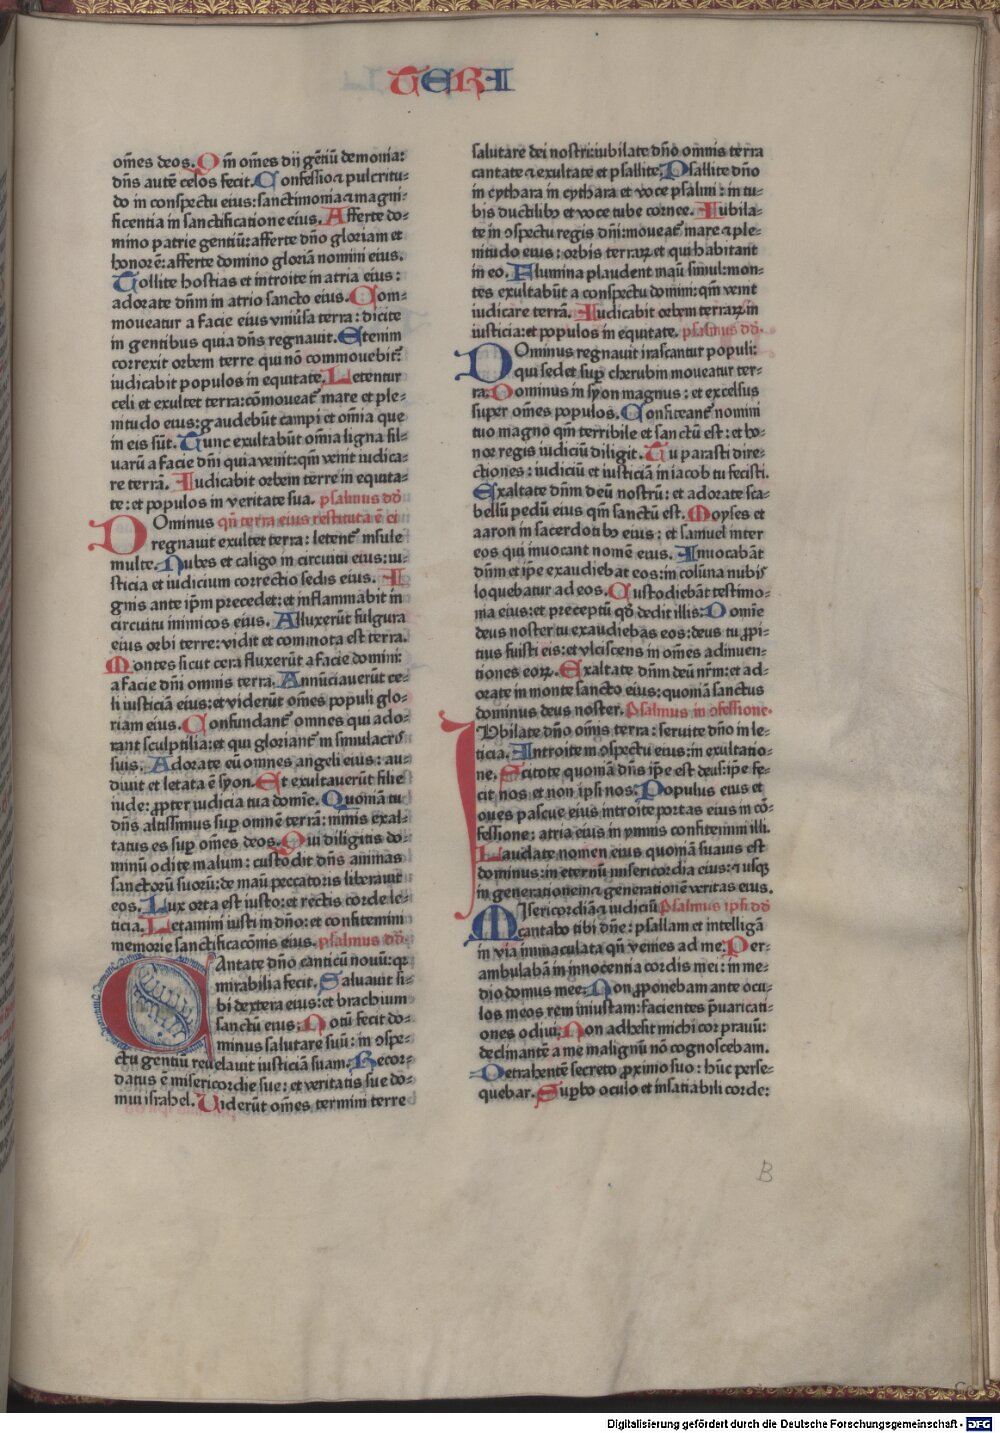 TERI
om̄es deos. Qm̄ om̄es dij gentiū demonia:
dn̄s autē celos fecit. Confessio ⁊ pulcritu⸗
do in conspectu eius: sanctimonia ⁊ magni⸗
ficentia in sanctificatione eius. Afferte do⸗
mino patrie gentiū: afferte dn̄o gloriam et
honorē: afferte domino gloriā nomini eius.
Tollite hostias et introite in atria eius:
adorate dn̄m in atrio sancto eius. Com⸗
moueatur a facie eius vniūsa terra: dicite
in gentibus quia dn̄s regnauit. Etenim
correxit orbem terre qui nō commouebit̄:
iudicabit populos in equitate. Letentur
celi et exultet terra: cōmoueat̄ mare et ple⸗
nitudo eius: gaudebūt campi et om̄ia que
in eis sūt. Tunc exultabūt om̄ia ligna sil⸗
uarū a facie dn̄i quia venit: qm̄ venit iudica⸗
re terrā. Iudicabit orbem terre in equita⸗
te: et populos in veritate sua. psalmus dō
DOminus qn̄ terra eius restituta ē ei
regnauit exultet terra: letent̄ insule
multe. Nubes et caligo in circuitu eius: iu⸗
sticia et iudicium correctio sedis eius. I⸗
gnis ante ip̄m precedet: et inflammabit in
circuitu inimicos eius. Alluxerūt fulgura
eius orbi terre: vidit et commota est terra.
Montes sicut cera fluxerūt a facie domini:
a facie dn̄i omnis terra. Annūciauerūt ce⸗
li iusticiā eius: et viderūt om̄es populi glo⸗
riam eius. Confundant̄ omnes qui ado⸗
rant sculptilia: et qui gloriant̄ in simulacris
suis. Adorate eū omnes angeli eius: au⸗
diuit et letata ē syon. Et exultauerūt filie
iude: ꝓpter iudicia tua domīe. Quoniā tu
dn̄s altissimus suꝑ omnē terrā: nimis exal⸗
tatus es suꝑ om̄es deos. Qui diligitis do⸗
minū odite malum: custodit dn̄s animas
sanctorū suorū: de manū peccatoris liberauit
eos. Lux orta est iusto: et rectis corde le⸗
ticia. Letamini iusti in dn̄o: et confitemini
memorie sanctificacōnis eius. psalmus dd̄
CAntate dn̄o canticū nouū: qꝛ
mirabilia fecit. Saluauit si⸗
bi dextera eius: et brachium
sanctū eius. Notū fecit do⸗
minus salutare suū: in ꝯspe⸗
ctu gentiū reuelauit iusticiā suam. Recor⸗
datus ē misericordie sue: et veritatis sue do⸗
mui israhel. Viderūt om̄es termini terre
salutare dei nostri: iubilate dn̄o omnis terra
cantate ⁊ exultate et psallite. Psallite dn̄o
in cythara in cythara et voce psalmi: in tu⸗
bis ductilibꝰ et voce tube cornee. Iubila⸗
te in ꝯspectu regis dn̄i: moueat̄ mare ⁊ ple⸗
nitudo eius: orbis terraꝝ et qui habitant
in eo. Flumina plaudent manū simul: mon⸗
tes exultabūt a conspectu domini: qm̄ venit
iudicare terrā. Iudicabit orbem terraꝝ in
iusticia: et populos in equitate. psalmus dd̄.
DOminus regnauit irascantur populi:
qui sedet suꝑ cherubin moueatur ter⸗
ra. Dominus in syon magnus: et excelsus
super om̄es populos. Confiteant̄ nomini
tuo magno qm̄ terribile et sanctū est: et ho⸗
nor regis iudiciū diligit. Tu parasti dire⸗
ctiones: iudiciū et iusticiā in iacob tu fecisti.
Exaltate dn̄m deū nostrū: et adorate sca⸗
bellū pedū eius qm̄ sanctū est. Moyses et
aaron in sacerdotibꝰ eius: et samuel inter
eos qui inuocant nomē eius. Inuocabāt
dn̄m et ip̄e exaudiebat eos: in colūna nubis
loquebatur ad eos. Custodiebāt testimo⸗
nia eius: et preceptū qḋ dedit illis. Domīe
deus noster tu exaudiebas eos: deus tu ꝓpi⸗
tius fuisti eis: et vlciscens in om̄es adinuen⸗
tiones eoꝝ. Exaltate dn̄m deū nr̄m: et ad⸗
orate in monte sancto eius: quoniā sanctus
dominus deus noster. Psalmus in ꝯfessione.
IUbilate dn̄o om̄is terra: seruite dn̄o in le⸗
ticia. Introite in ꝯspectu eius: in exultatio⸗
ne. Scitote quoniā dn̄s ip̄e est deus: ip̄e fe⸗
cit nos et non ipsi nos. Populus eius et
oues pascue eius introite portas eius in cō⸗
fessione: atria eius in ymnis confitemini illi.
Laudate nomen eius quoniā suauis est
dominus: in eternū misericordia eius: ⁊ usqꝫ
in generationem ⁊ generationē veritas eius.
MIsericordiā ⁊ iudiciū Psalmus ipsi dd̄
cantabo tibi dn̄e: psallam et intelligā
in via immaculata qn̄ venies ad me. Per⸗
ambulabā in innocentia cordis mei: in me⸗
dio domus mee. Non ꝓponebam ante ocu⸗
los meos rem iniustam: facientes p̄uaricati⸗
ones odiui. Non adhesit michi cor prauū:
declinantē a me malignū nō cognoscebam.
Detrahentē secreto ꝓximo suo: hūc perse⸗
quebar. Suꝑbo oculo et insatiabili corde:
B
Digitalisierung gefördert durch die Deutsche Forschungsgemeinschaft - DFG